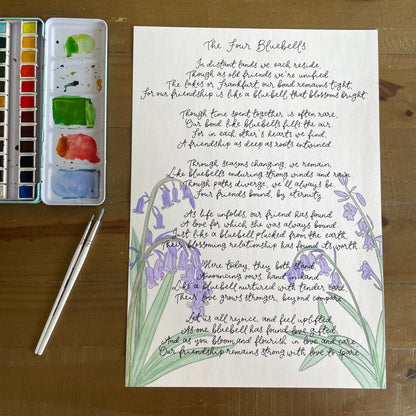 The Four Bluebells
In distant lands we each reside,
Though as old friends we're unified.
The lakes or Frankfurt, our bond remains tight,
For our friendship is like a bluebell that blossoms bright.
Though time spent together is often rare,
Our bond like bluebells fills the air.
For in each other's hearts we find,
A friendship as deep as roots entwined.
Through seasons changing, we remain,
Like bluebells enduring strong winds and rain,
Though paths diverge, we'll always be,
Four friends bound, by eternity.
As life unfolds, our friend has found
A love for which she was always bound.
Just like a bluebell plucked from the earth,
Their blossoming relationship has found its worth.
Here today, they both stand,
Announcing vows, hand in hand
Like a bluebell nurtured with tender care
Their love grows stronger, beyond compare
Let us all rejoice, and feel uplifted
As one bluebell has found love gifted
And as you bloom and flourish in love and care
Our friendship remains strong with love to spare